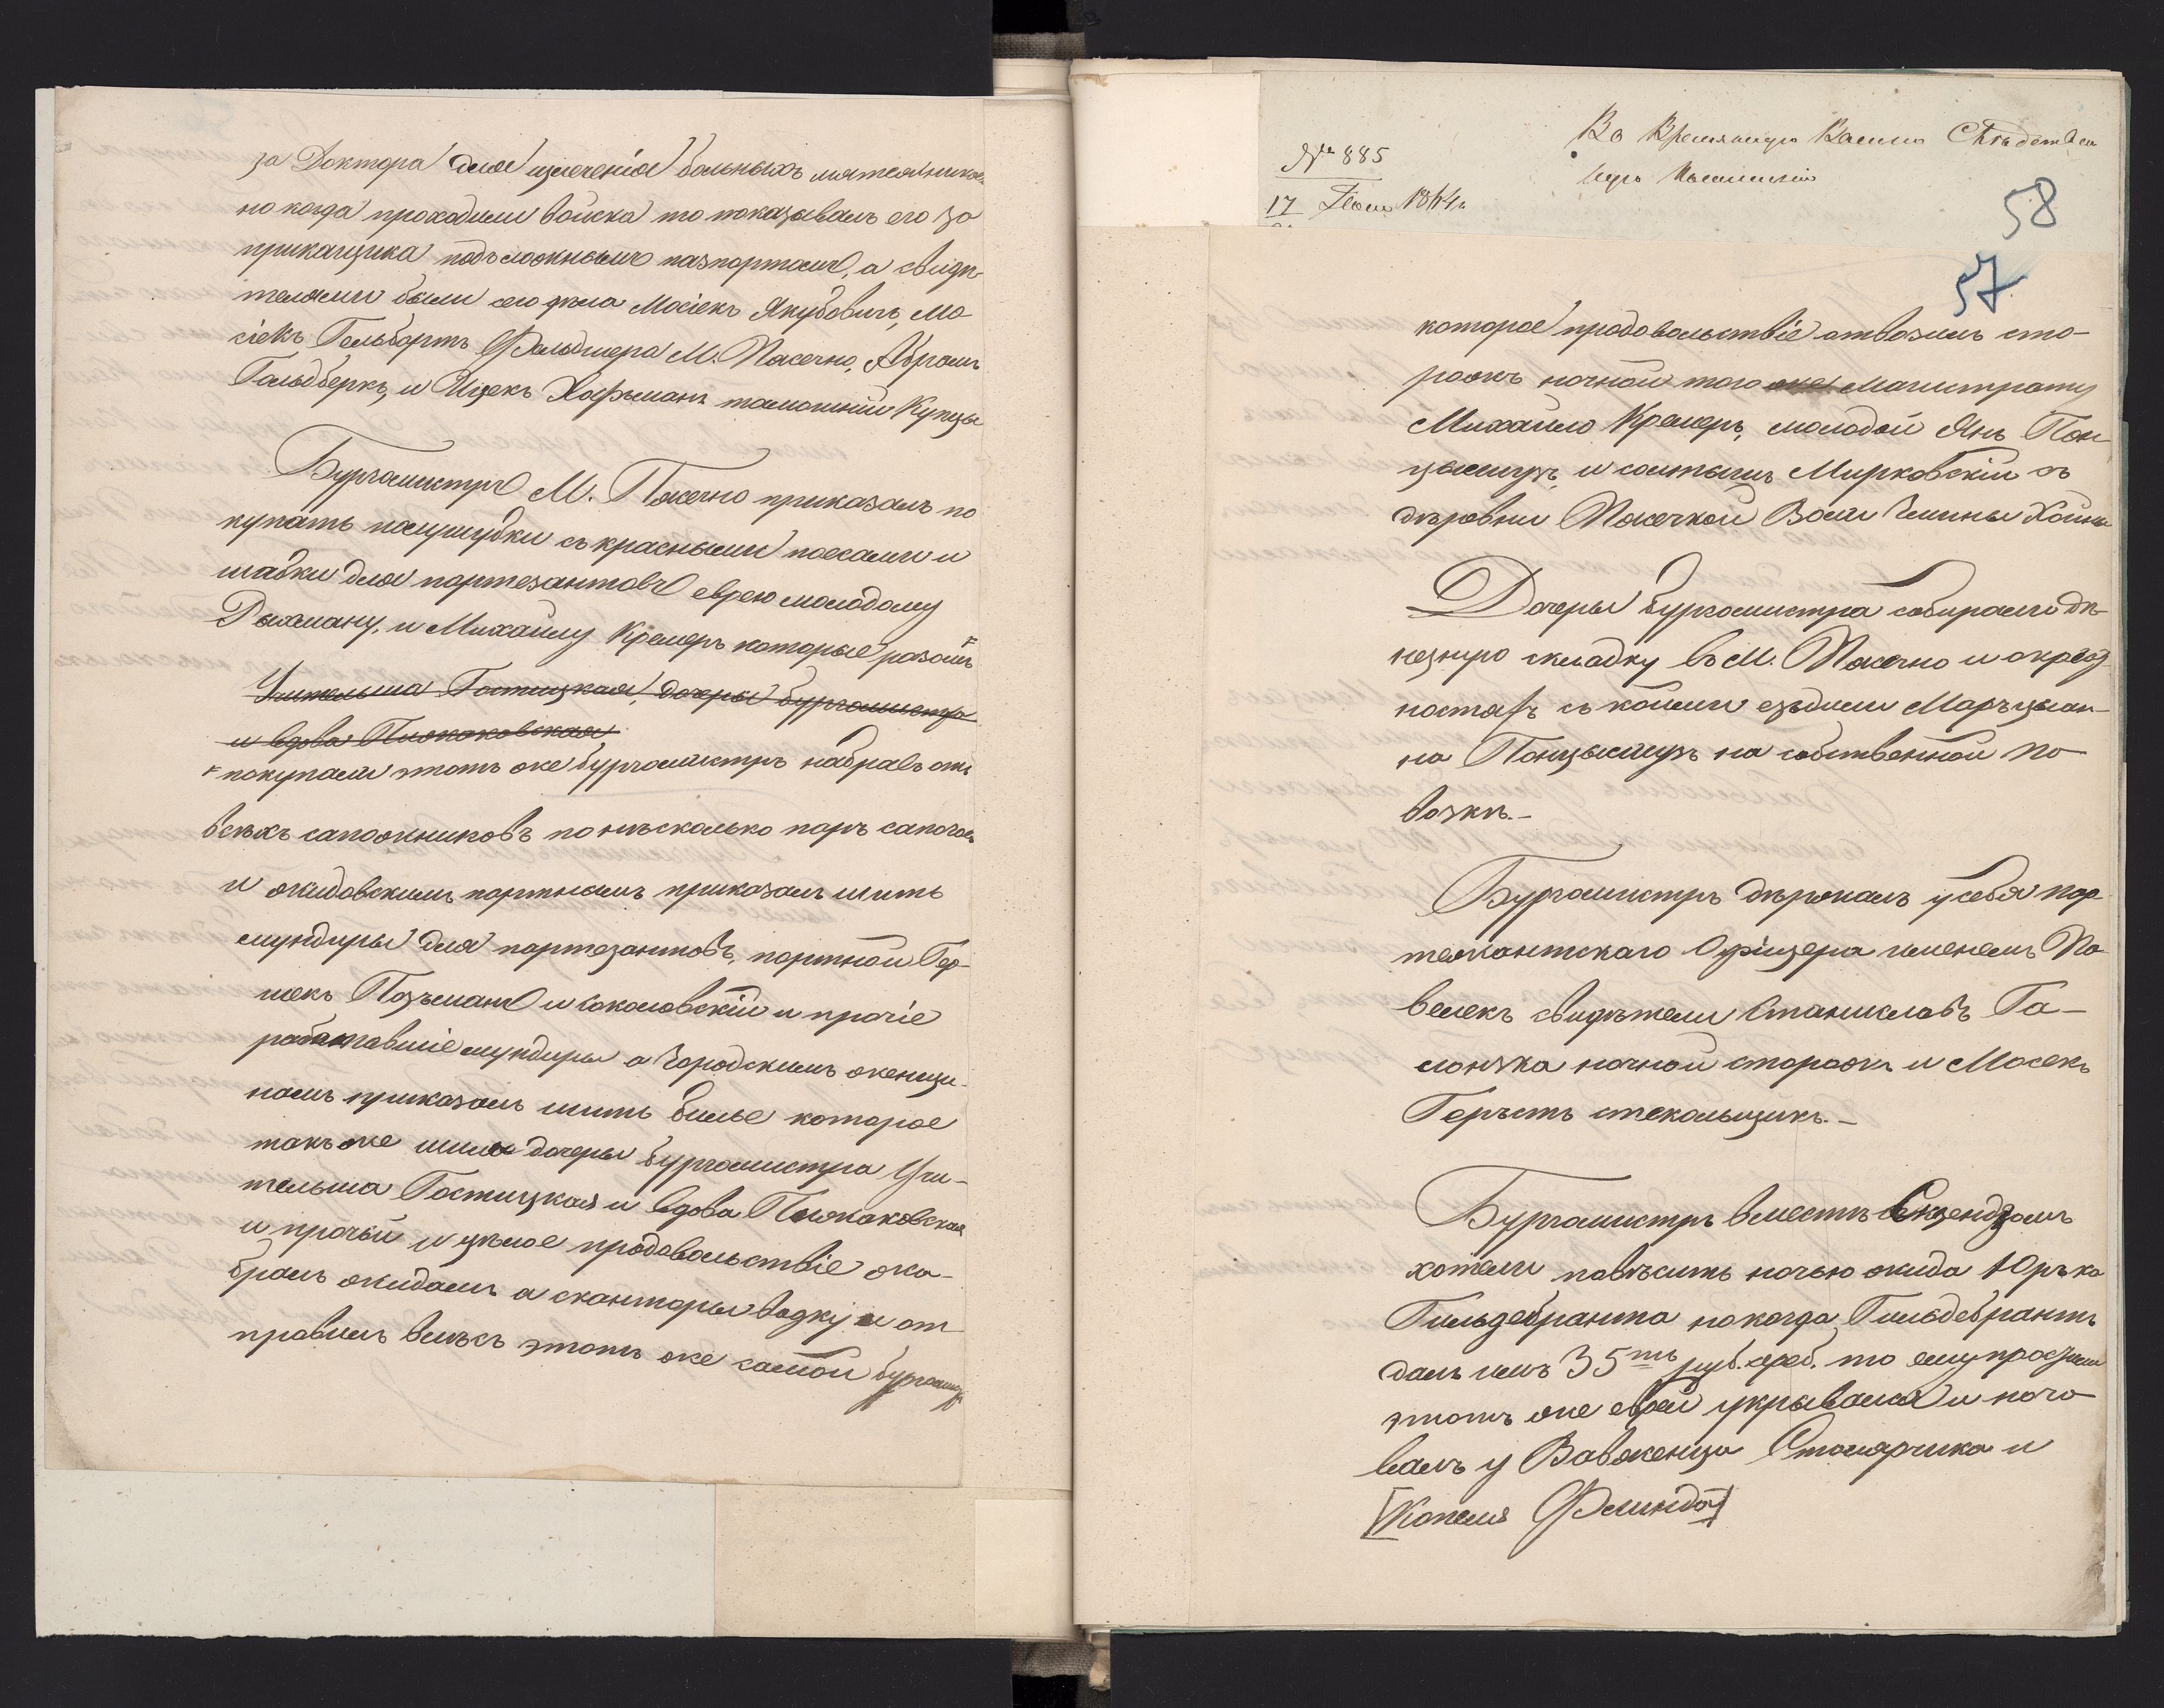 за Доктора для излеченія больныхъ мятежниковъ
но когда проходили войска то показывалъ его за
приказщика подъ ложнымъ пазпортомъ, а свидѣ-
телями были сего дѣла Мосіекъ Якубовичъ, Мо
сіекъ Гольбортъ Фольдшера М. Пясечно, Абрамъ
Гольдберкъ, и Ицекъ Хофъманъ тамошній Купцы
Бургомистръ М. Пясечно приказалъ по
купать полушубки съ красными поесами и
шабки для партезантовъ еврею молодому
Рыхману, и Михайлу Кремеръ которые разомъ
Учительша Гостицкая, дочеры бургомистра
и вдова Пионтковская
покупали этотъ же бургомистръ набралъ отъ
всѣхъ сапожниковъ по нѣсколько паръ сапоговъ
и жидовскимъ портнымъ приказалъ шить
мундиры для партезантовъ, портной Гер-
шекъ Позъманъ и Соколовскій и прочіе
работавшіе мундиры а городскимъ женщи-
намъ приказалъ шить билье которое
такъ же шили дочеры бургомистра Учи-
тельша Гостицкая и вдова Пионтковская
и прочьи и цѣлое продовольствіе ока-
бралъ жидамъ а сконторы водку и от
правилъ всѣхъ этотъ же самой бургомистръ
№ 885
17
58
57
которое продовольствіе отвозилъ сто-
рожъ ночной того же Магистрату
Михайло Кремеръ, молодой Янъ Пон
цылиушъ, и солтысъ Мирковскій съ
дѣровни Пясечкой Воли Гмины Хойна
Дочеры буркомистра собирали дѣ-
нежную складку въ М. Пясечно и окрест
ностяхъ съ коими ездили Марьцыан-
на Понцылиушъ на собственной по
возкѣ.–
Бургомистръ дѣржалъ у себя пар
тезантскаго Офицера именемъ Па
велекъ свидѣтели Станиславъ Га-
лонзка ночной сторожъ и Мосекъ
Геръстъ стекольщикъ.–
Бургомистръ вместѣ Сксендзомъ
хотели повѣсить ночью жида Юрька
Гильдебранта но когда Гильдебрантъ
далъ имъ 35тъ руб. сереб. то ему простили
этотъ же еврей укрывался и ночо
валъ у Вавженца Столярчика и
[Копеля Флинда]